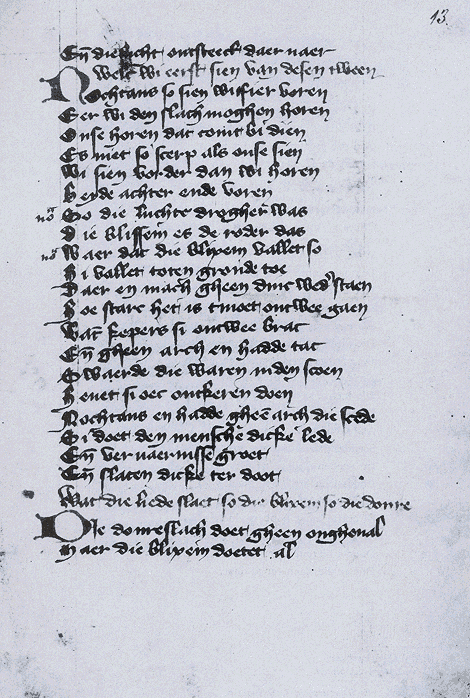 13.
Eñ die licht ontsteect daer naer
Welc wi eerst sien van desen tween
Nochtans so sien wi ffier voren
Eer wi den slach moghen horen
Onse horen dat comt bi dien
Es niet so scerp als onse sien
Wi sien vorder dan wi horen
Beide achter ende voren
So die lucht drogher was
Die blissem es de roder das
Waer dat die blixem vallet so
Hi vallet toten gronde toe
Daer en mach gheen dinc wed'staen
Hoe starc het is tmoet ontwee gaen
Dat kepers si ontwee brac
Eñ gheen arch en hadde tac
Swaerde die waren inden scoen
Benet si oec ontkeren doen
Nochtans en hadde gheē arch die scede
Si doet den menschē dicke lede
Eñ vervaernisse groet
Eñ slaten dicke ter doot
Wat die liede slaet so die blixem so die donre
Die donreslach doet gheen onghonal
Maer die blixem doetet al